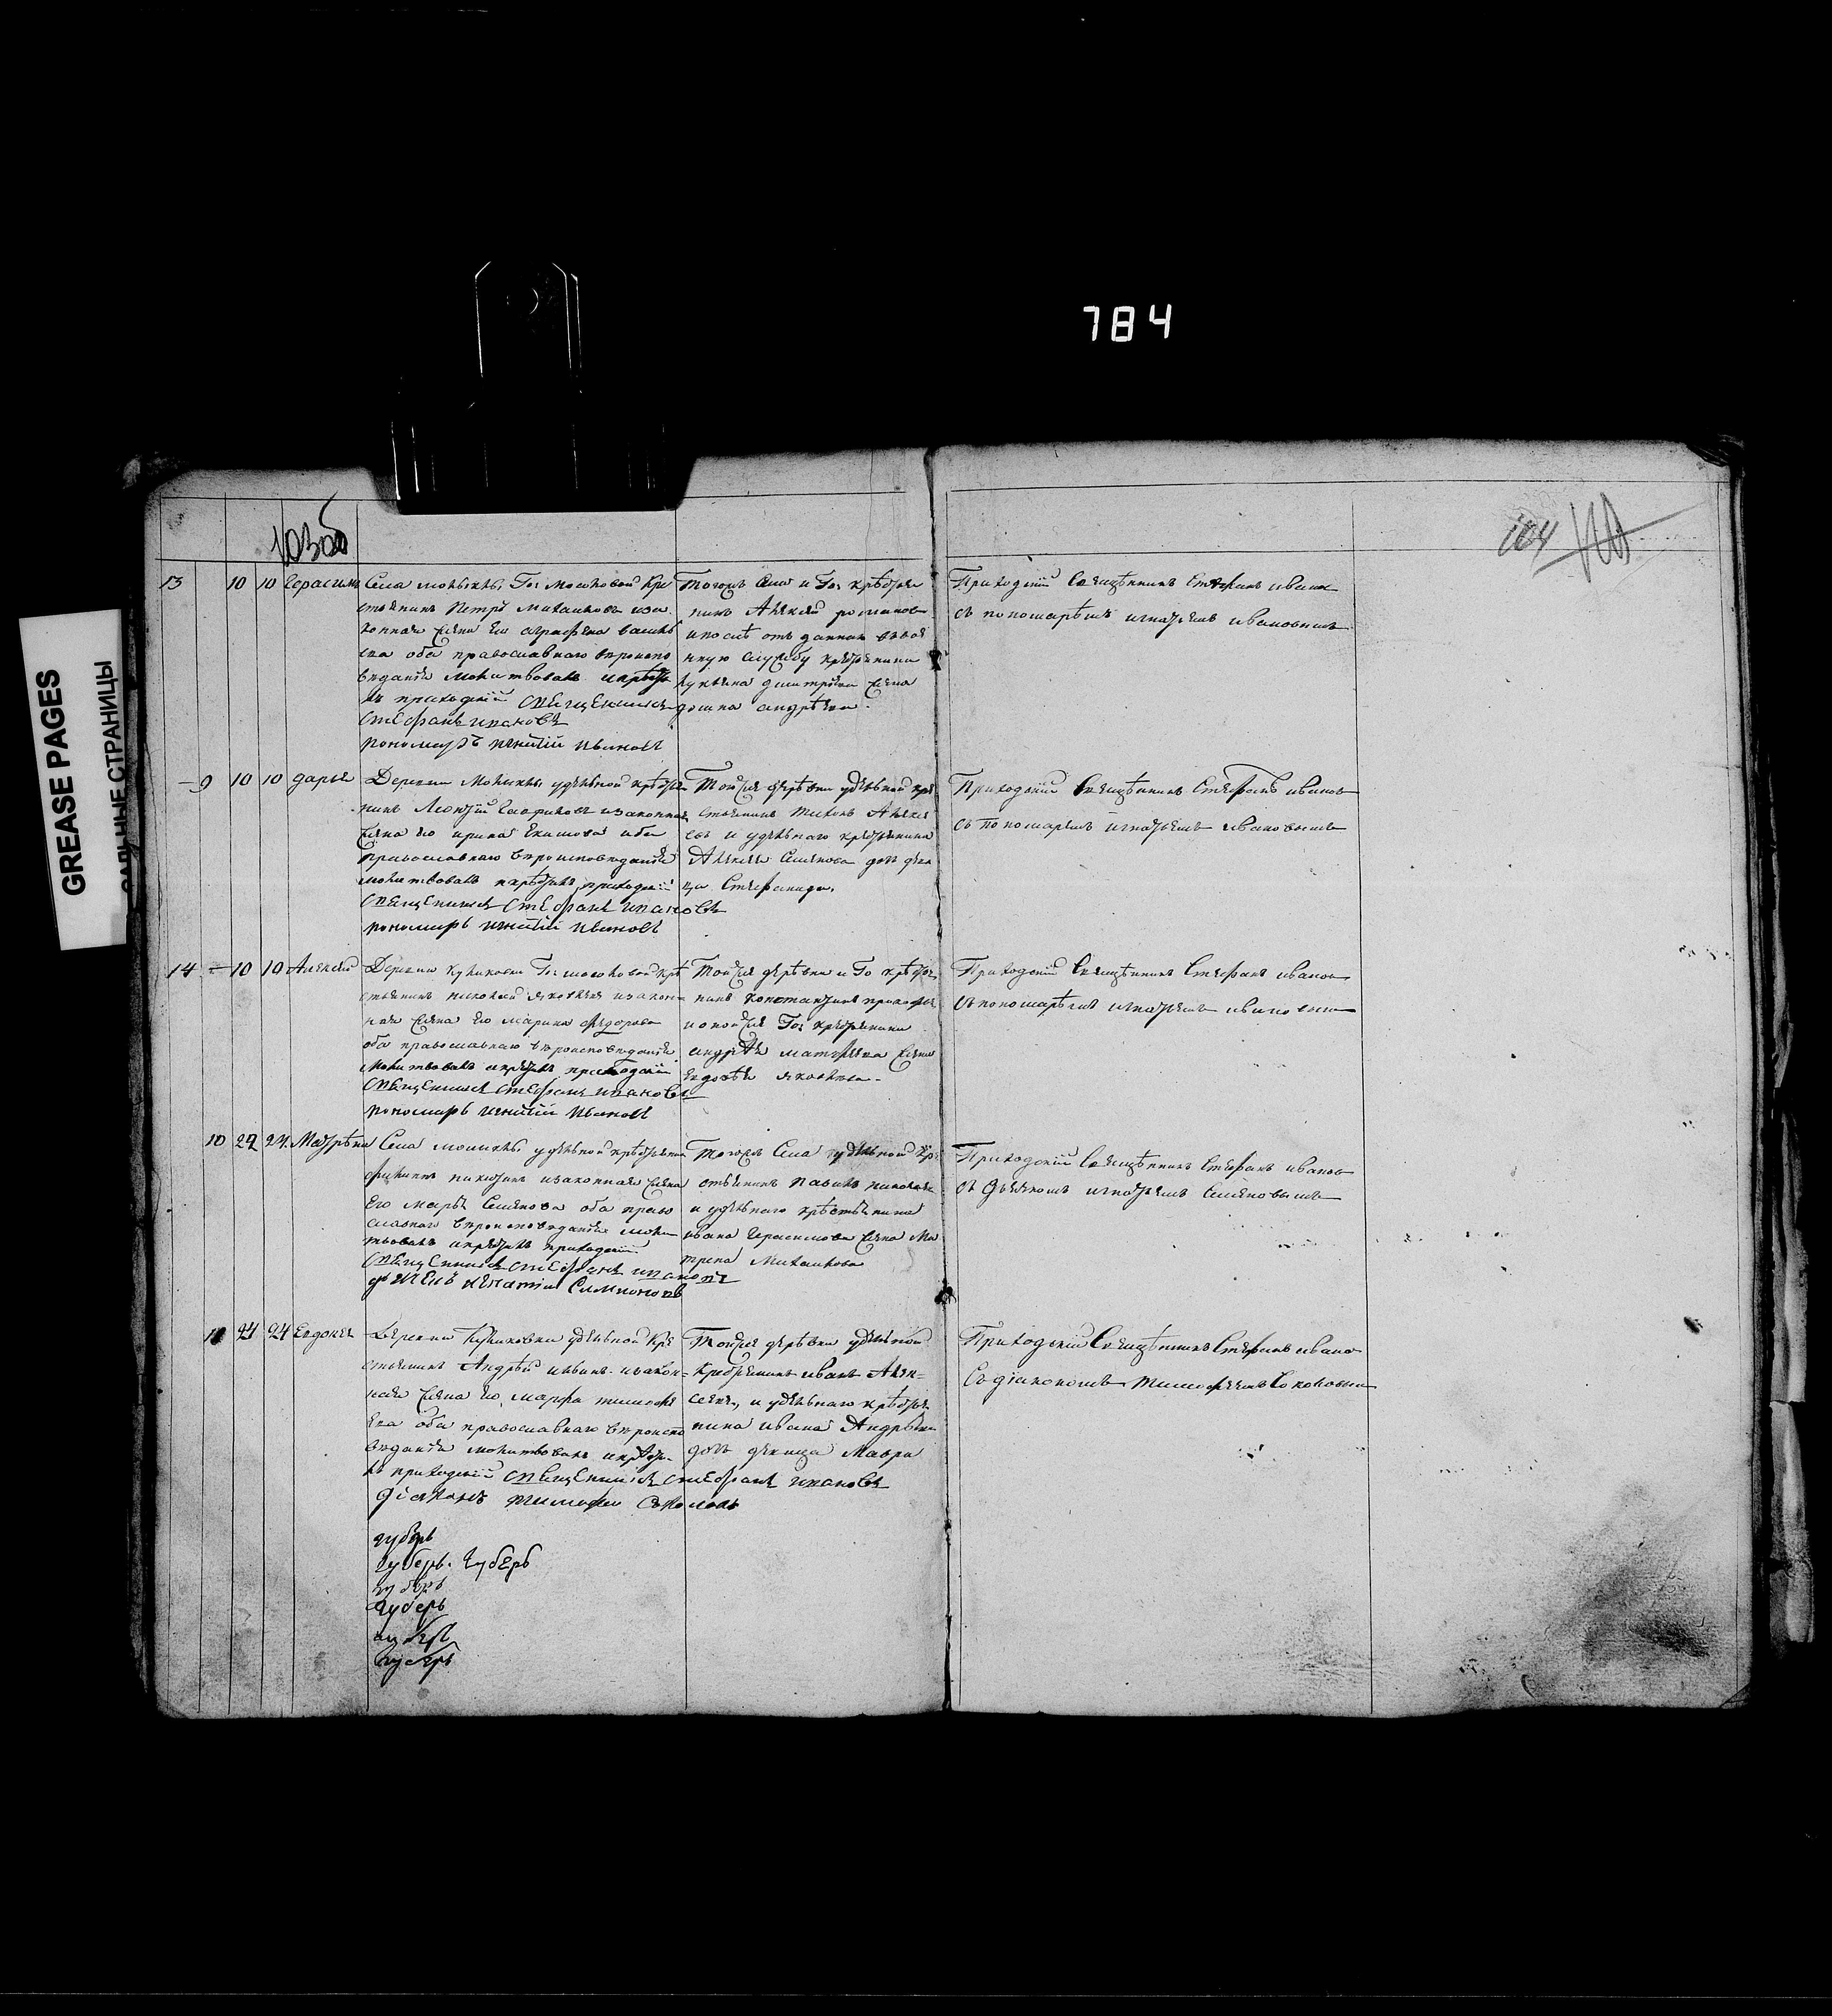 784
GREASE PAGES
САЛЬНЫЕ СТРАНИЦЫ
103об
104
13 10 10 Герасимъ
Села Гос: кре
стьянинъ Петръ Михаиловъ иза
конная жена его аграфена василь
ева оба православнаго вѣроиспо
вѣданія молитвовалъ икрѣсти
лъ приходскїй священникъ
стефанъ ивановъ
пономарь игнатїй ивановъ
Тогожъ села и Гос крѣстья
нинъ Алексѣй романов
ипослѣ отъ данная въвоѣ
нную службу крестьянина
димитрїева жена
домна андрѣева.
Приходскїй Священникъ Стефанъ иванов
съ пономарѣмъ игнатьемъ ивановымъ
9 10 10 дарья
Деревни удѣльной крѣстья
нинъ Леонтїй Гавриловъ изаконная
жена его ирина екимова оба
православнаго вѣроисповѣданїя
молитвовалъ икрѣстилъ приходскїй
священникъ стефанъ ивановъ
пономарь игнатїй ивановъ
Тойже дерѣвни удѣльной кре
стьянинъ Тихонъ Алексѣ
евъ и удѣльнаго крестьянина
Алексея Семенова дочь дѣви
ца Стефанида.
Приходскїй Священникъ Стефанъ иванов
съ пономаремъ игнатьемъ ивановымъ
14 10 10 Алексѣй
Деревни Куликовки Гос крѣ
стьянинъ николай яковлевъ изакон
ная жена его марина федорова
оба православнаго вѣроисповѣданїя
молитвовалъ икрестилъ приходскїй
священникъ стефанъ ивановъ
пономарь игнатїй ивановъ
Тойже дерѣвни и Го крѣстья
нинъ константинъ прокофье
итойже Гос крестьянина
андрѣя матвѣева жена
Евдокѣя яковлева.
Приходскїй Священникъ Стефанъ иванов
съ пономарѣмъ игнатьемъ ивановым
10 24 24. Матрѣна
Села удѣльной крѣстьянин
филипъ никитинъ изаконная жена
Его марья Семенова оба право
славнаго вѣроисповѣданїя моли
твовалъ икрестилъ приходскїй
священникъ стефанъ ивановъ
дьячекъ игнатїи Симионовъ
Тогоже Села удѣльной кре
стьянинъ Павилъ николаев
и удѣльнаго крѣстьянина
ивана Герасимова жена Ма
трена Михаилова
Приходскїй Священникъ Стефанъ иванов
съ Дьячкомъ игнатьемъ Семеновымъ
11 24 24 Евдокея
Деревни Куликовки удѣльной Кре
стьянинъ Андрѣй ильинъ изакон=
ная жена его марфа тимофе
ева оба православнаго вѣроиспо
вѣданїя молитвовалъ икрѣсти-
лъ приходскїй священникъ стефанъ ивановъ
дїаконъ тимофеи Соколовъ
Тойже дерѣвни удѣльной
Крестьянинъ иванъ Алек=
сеевъ, и удѣльнаго крѣстья
нина ивана Андрѣева
дочь дѣвица Мавра
Приходскїй Священникъ Стефанъ ивано
Съ дїакономъ Тимофѣемъ Соколовым
губерь
губерь. губерь
губерь
губерь
губерь
губерь